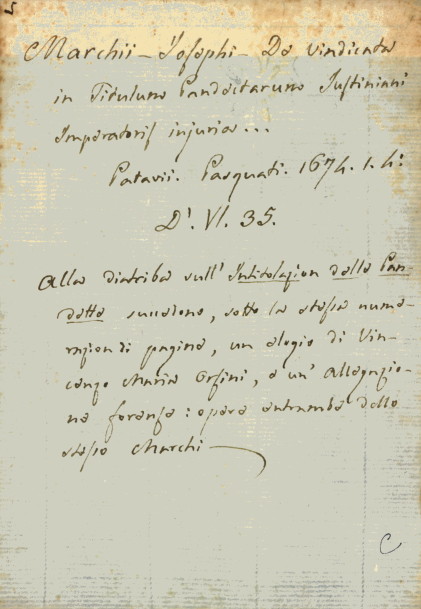 5
Marchii - Josephi - De vindicata
in Titulum Pandectarum Justiniani
Imperatoris injuria...
Patavii. Pasquati. 1674. 1. 4:
D'. VI. 35.
Alla diatriba sull' Intitolazion delle Pan-
dette succedono, sotto la stessa nume-
razion di pagine, un elogio di Vin-
cenzo Maria Orsini, e un' Allegazio-
ne forense: opere entrambe dello
stesso Marchi
C